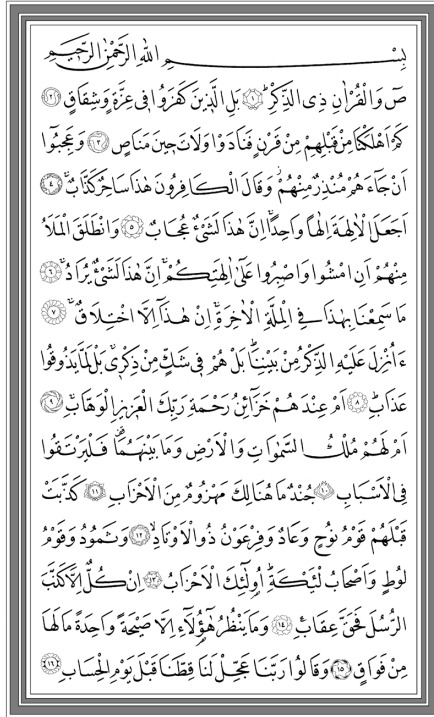 بِسْمِ اللّٰهِ الرَّحْمٰنِ الرَّحٖيمِ
صٓ وَالْقُرْاٰنِ ذِي الذِّكْرِؕ ﴿١﴾ بَلِ الَّذٖينَ كَفَرُوا فٖى عِزَّةٍ وَشِقَاقٍ ﴿٢﴾
كَمْ اَهْلَكْنَا مِنْ قَبْلِهِمْ مِنْ قَرْنٍ فَنَادَوْا وَلَاتَ حٖينَ مَنَاصٍ ﴿٣﴾ وَعَجِبُٓوا
اَنْ جَٓاءَهُمْ مُنْذِرٌ مِنْهُمْؗ وَقَالَ الْكَافِرُونَ هٰذَا سَاحِرٌ كَذَّابٌۚ ﴿٤﴾
اَجَعَلَ الْاٰلِهَةَ اِلٰهًا وَاحِدًاۚ اِنَّ هٰذَا لَشَيْءٌ عُجَابٌ ﴿٥﴾ وَانْطَلَقَ الْمَلَاُ
مِنْهُمْ اَنِ امْشُوا وَاصْبِرُوا عَلٰٓى اٰلِهَتِكُمْۚ اِنَّ هٰذَا لَشَيْءٌ يُرَادُۚ ﴿٦﴾
مَا سَمِعْنَا بِهٰذَا فِي الْمِلَّةِ الْاٰخِرَةِۚ اِنْ هٰذَٓا اِلَّا اخْتِلَاقٌۚ ﴿٧﴾
ءَاُنْزِلَ عَلَيْهِ الذِّكْرُ مِنْ بَيْنِنَاؕ بَلْ هُمْ فٖى شَكٍّ مِنْ ذِكْرٖىۚ بَلْ لَمَّا يَذُوقُوا
عَذَابِؕ ﴿٨﴾ اَمْ عِنْدَهُمْ خَزَٓائِنُ رَحْمَةِ رَبِّكَ الْعَزٖيزِ الْوَهَّابِۚ ﴿٩﴾
اَمْ لَهُمْ مُلْكُ السَّمٰوَاتِ وَالْاَرْضِ وَمَا بَيْنَهُمَا۠ فَلْيَرْتَقُوا
فِي الْاَسْبَابِ ﴿١٠﴾ جُنْدٌ مَا هُنَالِكَ مَهْزُومٌ مِنَ الْاَحْزَابِ ﴿١١﴾ كَذَّبَتْ
قَبْلَهُمْ قَوْمُ نُوحٍ وَعَادٌ وَفِرْعَوْنُ ذُوالْاَوْتَادِۙ ﴿١٢﴾ وَثَمُودُ وَقَوْمُ
لُوطٍ وَاَصْحَابُ لْـَٔيْكَةِؕ اُو۬لٰٓئِكَ الْاَحْزَابُ ﴿١٣﴾ اِنْ كُلٌّ اِلَّا كَذَّبَ
الرُّسُلَ فَحَقَّ عِقَابِ۟ ﴿١٤﴾ وَمَا يَنْظُرُ هٰٓؤُ۬لَٓاءِ اِلَّا صَيْحَةً وَاحِدَةً مَا لَهَا
مِنْ فَوَاقٍ ﴿١٥﴾ وَقَالُوا رَبَّنَا عَجِّلْ لَنَا قِطَّنَا قَبْلَ يَوْمِ الْحِسَابِ ﴿١٦﴾